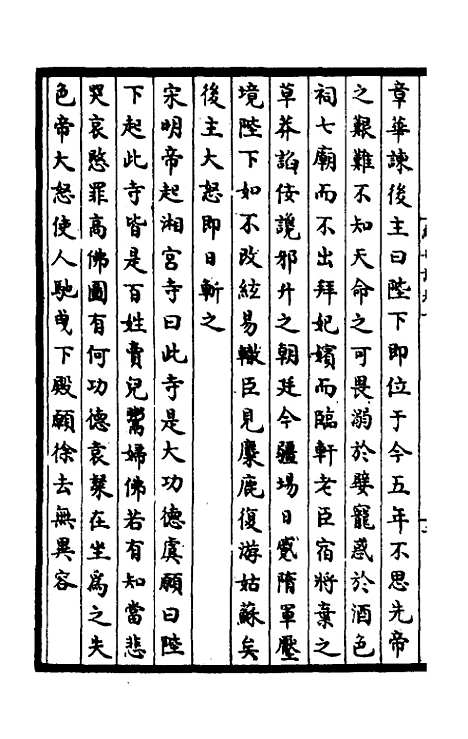 章華諫後主曰陛下即位于今五年不思先帝
之艱難不知天命之可畏溺於嬖寵惑於酒色
祠七廟而不出拜妃嬪而臨軒老臣宿將棄之
草莽諂佞讒邪升之朝廷今疆場日蹙隋軍壓
境陛下如不改絃易轍臣見麋鹿復游姑蘇矣
後主大怒即日斬之
宋明帝起湘宮寺曰此寺是大功德虞願曰陛
下起此寺皆是百姓賣兒鬻婦佛若有知當悲
哭哀愍罪高佛圖有何功德袁粲在坐為之失
色帝大怒使人馳曳下殿願徐去無異容